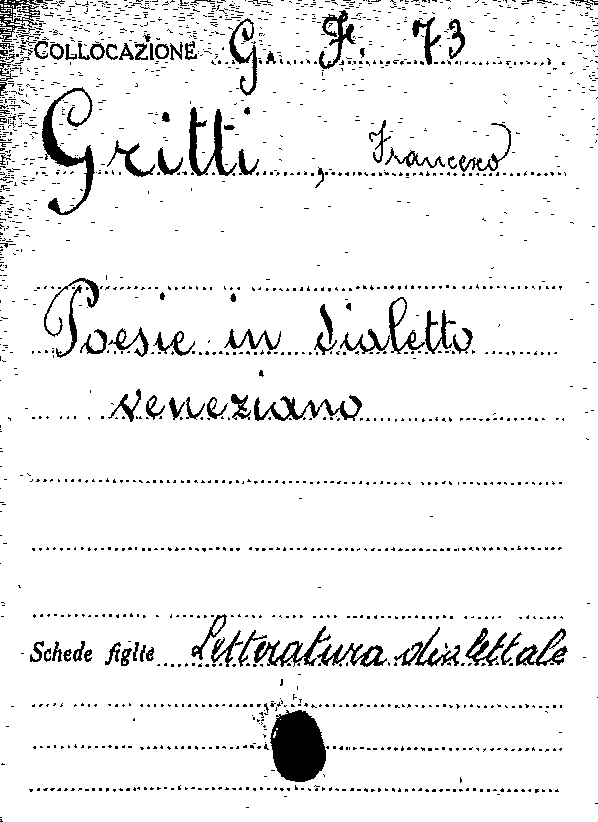 COLLOCAZIONE G. F. 73
Gritti, Francesco
Poesie in dialetto
veneziano
Schede figlie Letteratura dialettale